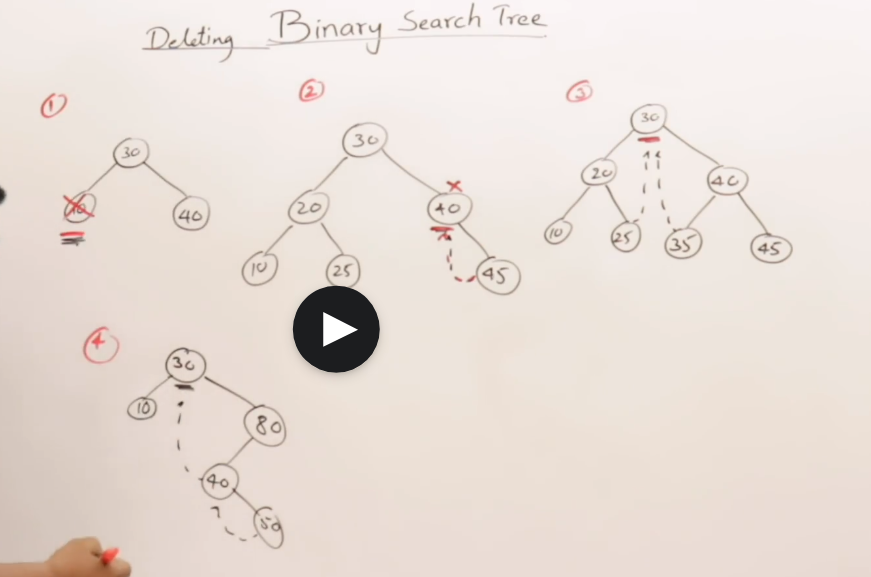 Deleting Binary Search Tree
1 2 3
30
40
30
20 40
10 25 45
30
20 40
10 25 35 45
4
30
10 80
40
50